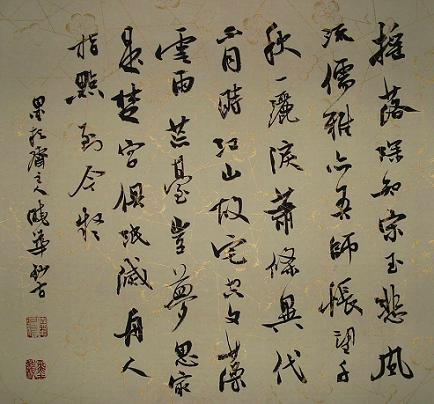 搖落深知宋玉悲風
流儒雅亦吾師悵望千
秋一灑淚蕭條異代
不同時江山故宅空文藻
雲雨荒臺豈夢思最
是楚宮俱泯滅舟人
指點到今疑
齋主人